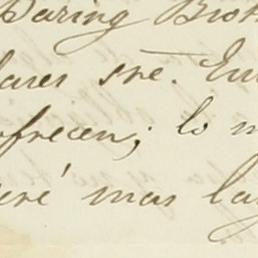 Baring Brot
lares sre. En
ofrecen; lo m
eré mas la